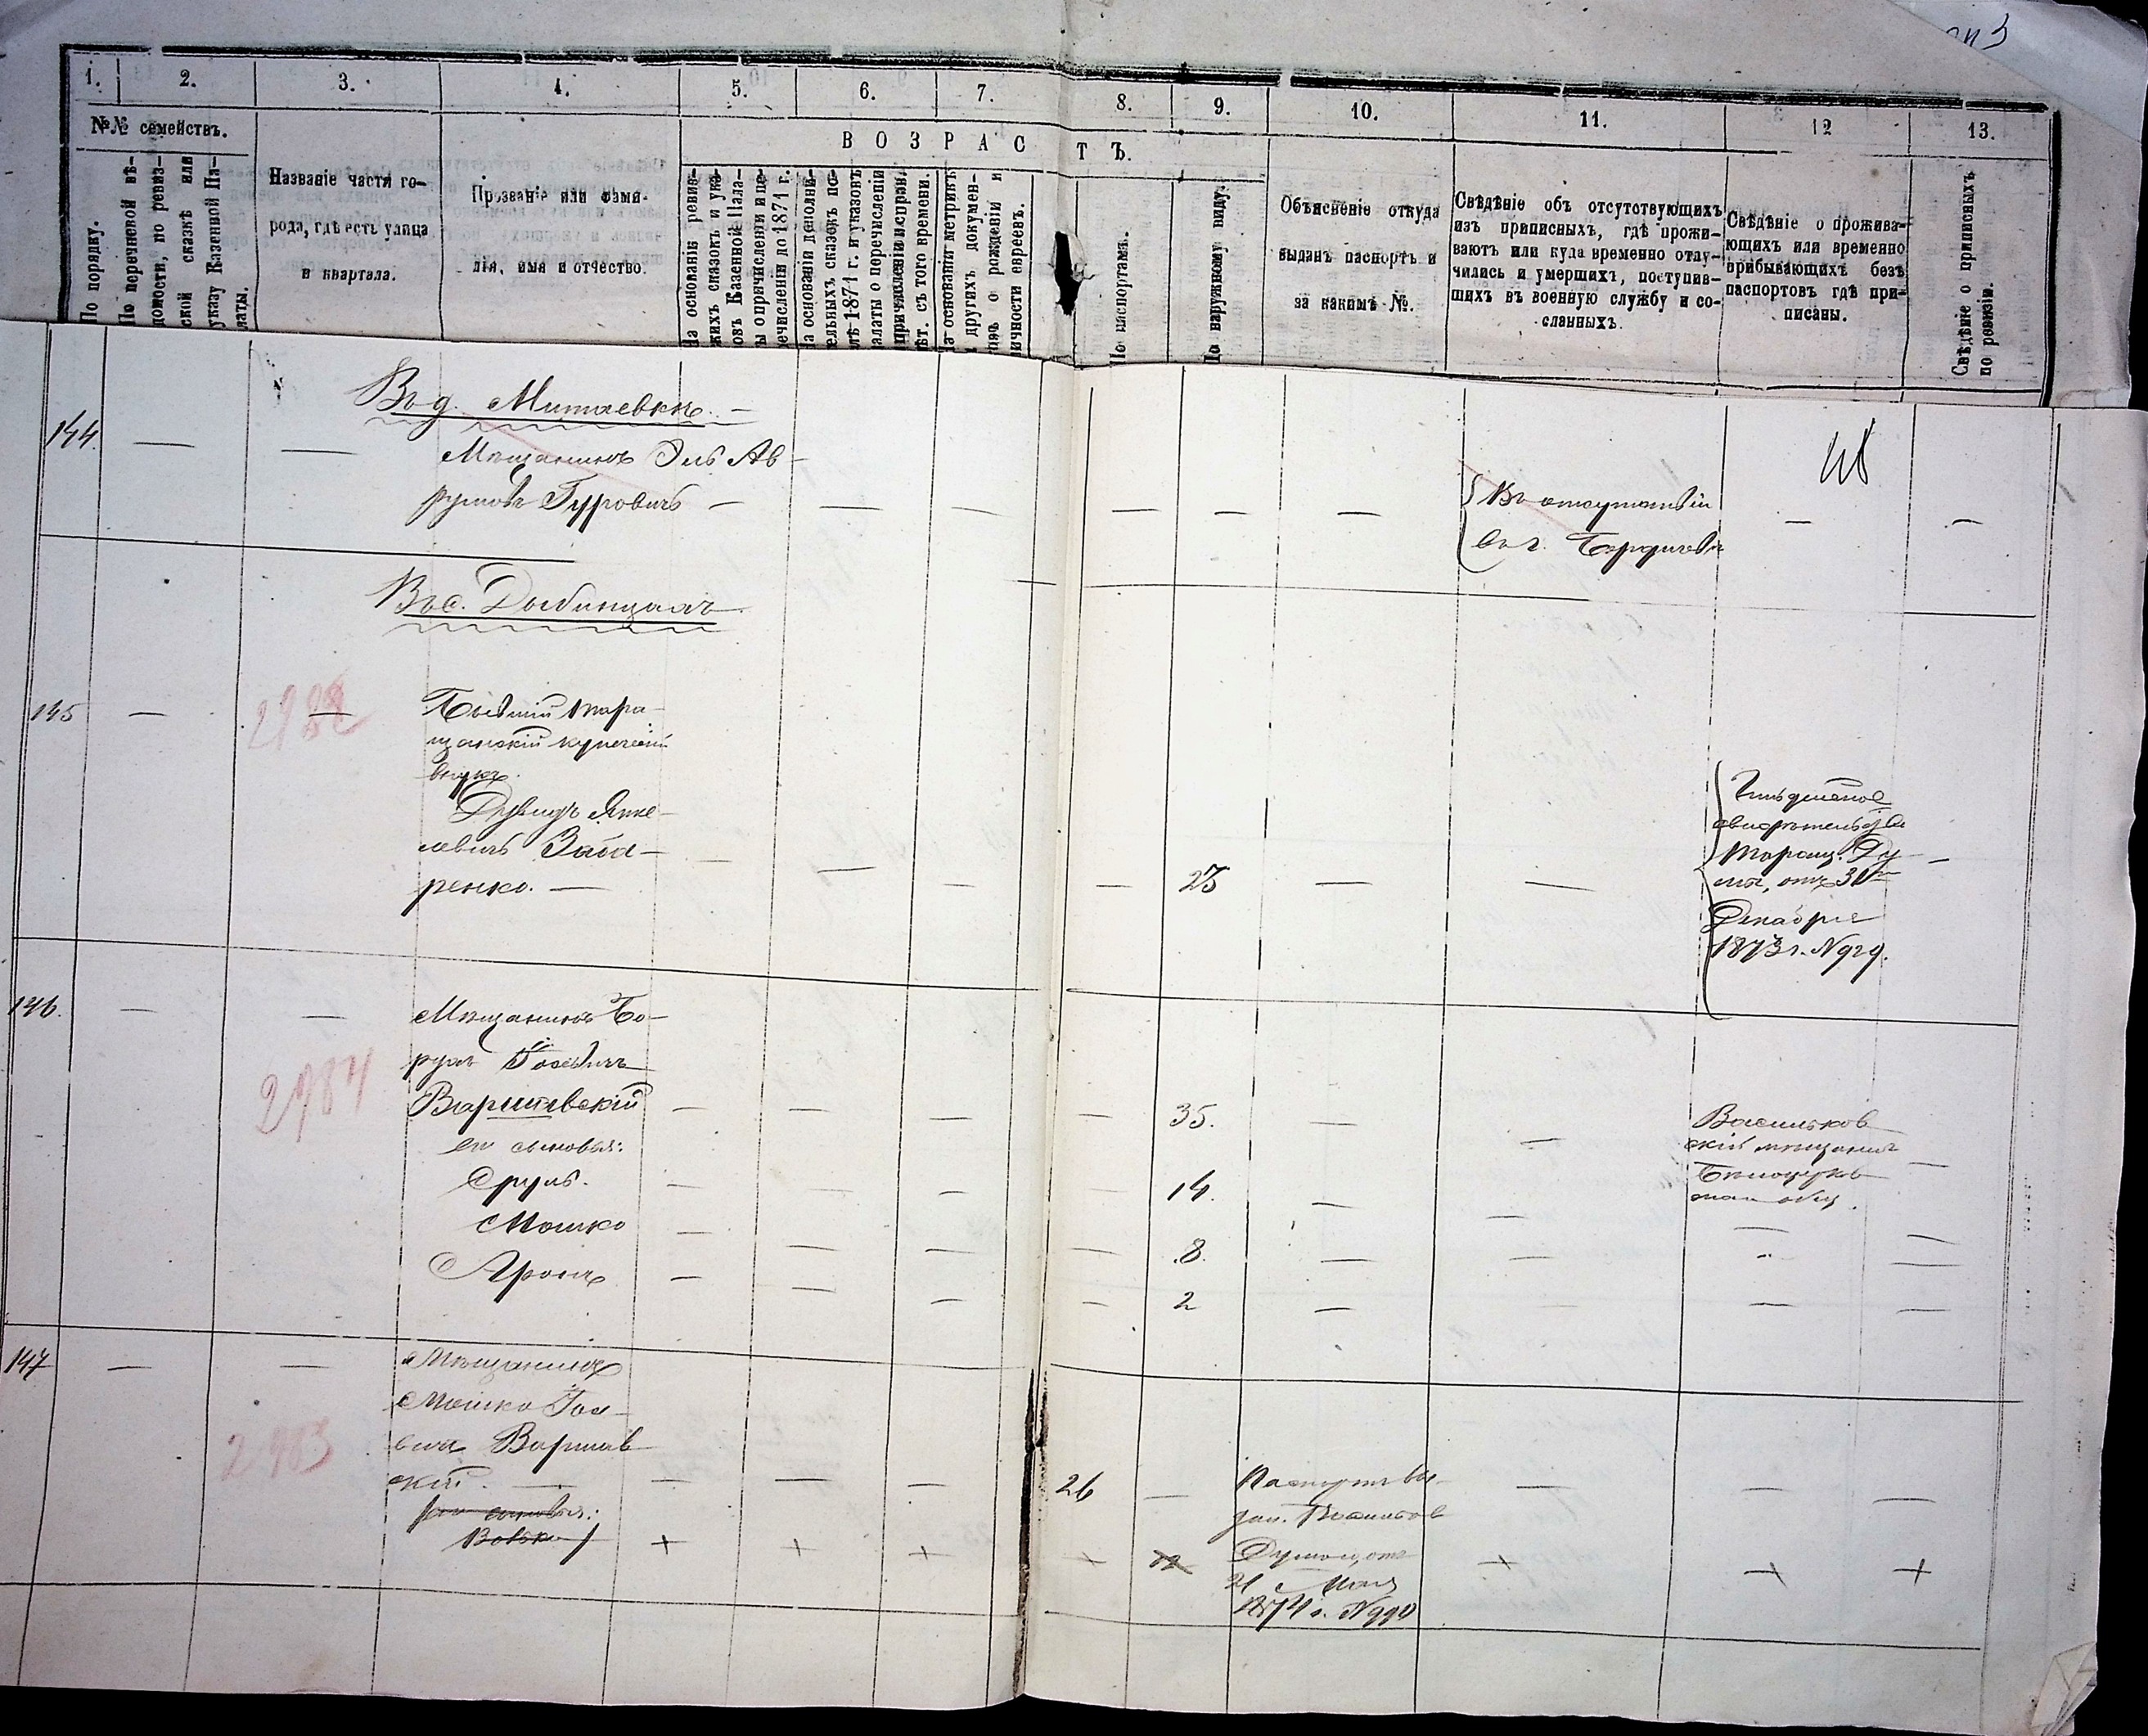 1.
2.
3.
4.
5.
6.
7.
8.
9.
10.
11.
12
13.
№№ семействъ.
ВОЗРАСТЪ.
По порядку.
По перечневой вѣ-
домости, по ревиз-
ской сказкѣ или
указу Казенной Па-
латы.
Названіе части го-
рода, гдѣ есть улица
и квартала.
Прозваніе или фами-
лія, имя и отчество.
На основаніи ревиз-
скихъ сказокъ и ука-
зовъ Казенной Пала-
ты о причисленіи и пе-
речисленіи до 1871 г.
На основаніи дополни-
тельныхъ сказокъ по-
слѣ 1871 г. и указовъ
палаты о перечисленіи
причисленіи и исправ.
лѣт. съ того времени.
На основаніи метрикъ
и другихъ докумен-
товъ о рожденіи и
личности евреевъ.
По паспортамъ.
По наружному виду.
Объясненіе откуда
выданъ паспортъ и
за какимъ №.
Свѣдѣніе объ отсутствующихъ
изъ приписныхъ, гдѣ прожи-
ваютъ или куда временно отлу-
чились и умершихъ, поступив-
шихъ въ военную службу и со-
сланныхъ.
Свѣдѣніе о прожива-
ющихъ или временно
прибывающихъ безъ
паспортовъ гдѣ при-
писаны.
Свѣдѣніе о приписныхъ
по ревизіи.
Въ д. Митаевкѣ. —
144. — —
Мѣщанинъ Эль Ав-
румовъ Гуровичъ — — — — — —
Въ отсутствіи
въ г. Бердичевѣ
— —
Въ с. Дыбинцахъ
145 — —
Бывшій Тара-
щанскій купеческій
внукъ
Дувидъ Янке-
левичъ Заба-
ренко. — — — — — 23 — —
Гильдейское
свидѣтельство
Таращ. Ду-
мы, отъ 31го
Декабря
1873 г. N 929.
—
146. — —
2984
Мѣщанинъ Бо-
рухъ Іосевичъ
Варшавскій — — — — 35. — —
Васильков
скій мѣщанинъ
Бѣлоцерков
—
его сыновья:
Сруль. — — — — 14. — —
Мошко — — — — 8. — —
Аронъ — — — — 2 — — — —
147 — —
2983
Мѣщанинъ
Мошко Іос-
евичъ Варшав-
скій. — — — — 26 —
Паспортъ вы-
дан. Васильков
Думою, отъ
21 Мая
1874 г. N 990
— — —
его сыновья:
Волько
+ + + + + + +